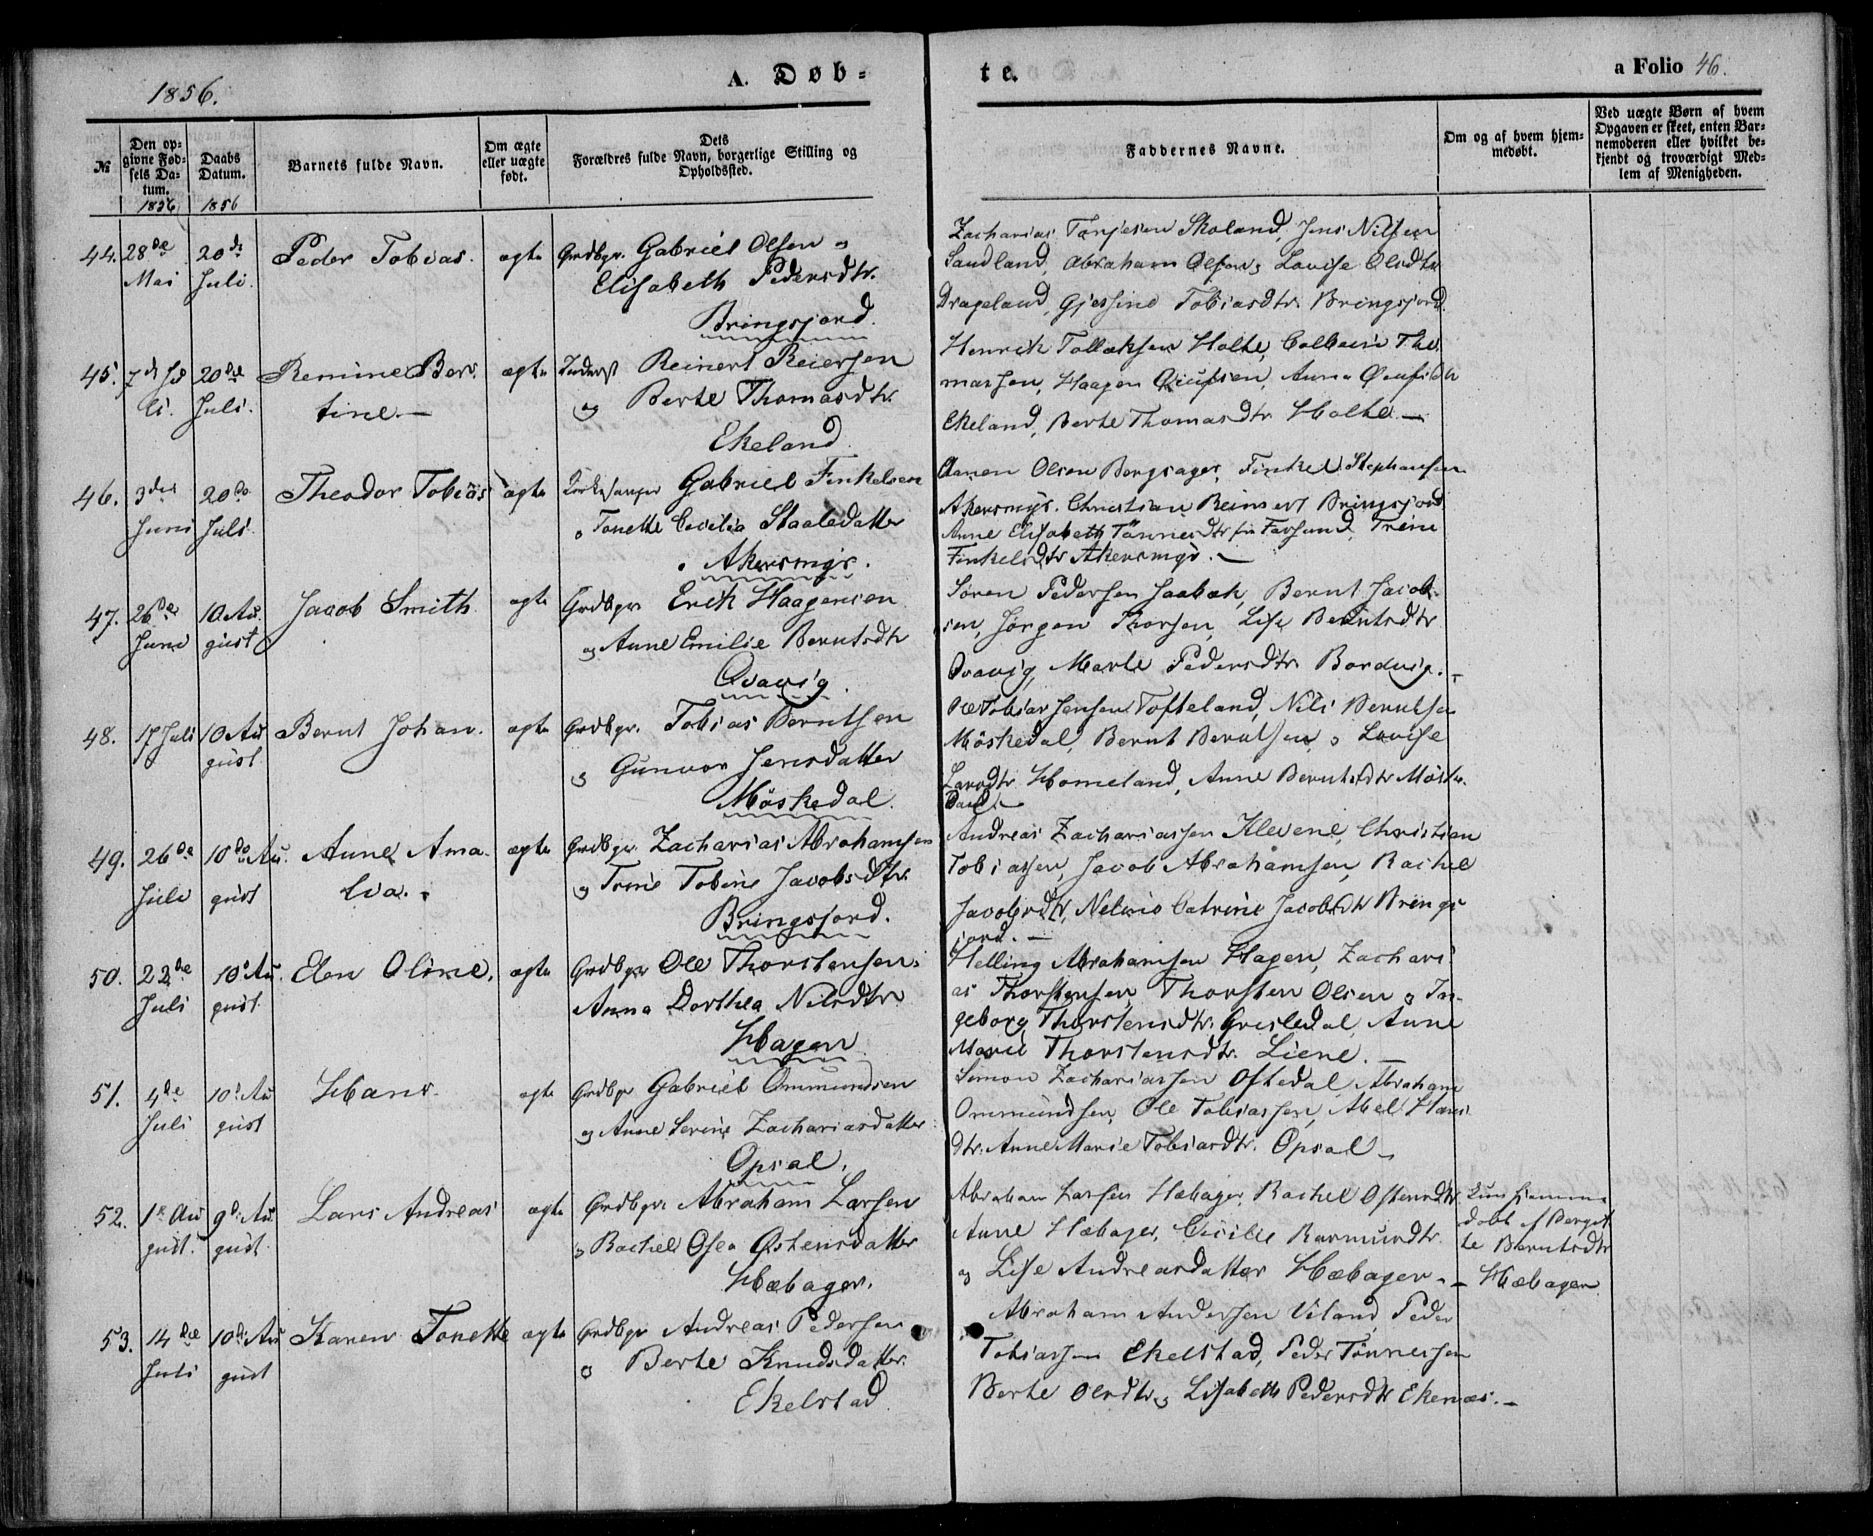 1856.
A. Døb=
te.
a Folio 46.
№
Den op-
givne Fød-
sels Da-
tum.
1856
Daabs
Datum.
1856
Barnets fulde Navn.
Om ægte
eller uægte
født.
Dets
Forældres fulde Navn, borgerlige Stilling og
Opholdssted.
Faddernes Navne.
Om og af hvem hjem-
medøbt.
Ved uægte Børn af hvem
Opgaven er skeet, enten Bar-
nemoderen eller hvilket be-
kjendt og troværdigt Med-
lem af Menigheden.
44. 28de Mai
20de Juli.
Peder Tobias.
ægte
Grdbgr. Gabriel Olsen og
Elisabeth Pedersdtr.
Bringsjord.
Zacharias Tønjesen Skoland, Jens Nilsen
Sandland, Abraham Olsen og Lovise Olsdtr
Drageland, Gjersine Tobiasdtr. Bringsjord.
45. 7de Juli.
20de Juli.
Remine Ber-
tine. —
ægte
Inderst Reinert Reiersen
og Berte Thomasdtr
Ekeland
Henrik Tollaksen Holte, Colbein Tho-
massen, Haagen
Ekeland, Berte Thomasdtr Holte. —
46. 3die Juni
20de Juli.
Theodor Tobias
ægte
Kirkesanger Gabriel Finkelsen
o Tonette Cecilia Staalesdatter
Akersmyr.
Aanen Olsen Borgsager, Finkel Stephansen
Akersmyr. Christian Reinert Bringsjord
Anne Elisabeth Tønnesdtr fra Farsund, Trine
Finkelsdtr Akersmyr. —
47. 26de Juni
10 Au-
gust
Jacob Smith
ægte
Grdbgr Erik Haagensen
og Anne Emilie Berntsdtr
Qvavig.
Søren Pedersen Jaabæk, Bernt Jacob-
sen, Jørgen Thorsen, Lise Berntsdtr
Qvavig, Marte Pedersdtr. Bordvig. -
48. 17 Juli
10 Au
gust
Bernt Johan.
ægte
Grdbgr. Tobias Berntsen
og Gunvor Jensdatter
Möskedal.
Ole Tobias Jensen Tofteland, Nils Berntsen
Möskedal, Bernt Berntsen, o Lovise
Larsdtr Homeland, Anne Berntsdtr Möske-
dal. —
49. 26de Juli
10de Au.
gust
Anne Ama-
lva.
ægte
Grdbgr Zacharias Abrahamsen
og Trine Tobine Jacobsdtr.
Bringsjord.
Andreas Zachariassen Klevene, Christian
Tobiassen, Jacob Abrahamsen, Rachel
Jacobsdtr, Neline Catrine Jacobsdtr Brings-
jord. —
50. 22de
Juli
10de Au.
gust
Elen Oline.
ægte
Grdbgr Ole Thorstensen
Anna Dorthea Nilsdtr
Hagen
Helling Abrahamsen Hagen, Zachari-
as Thorstensen, Thorsten Olsen og In-
geborg Thorstensdtr. Grisledal, Anne
Marie Thorstensdtr. Liene. —
51. 4de
Juli
10de Au
gust
Hans.
ægte
Grdbgr Gabriel Ommundsen
og Anne Serine Zachariasdatter
Opsal.
Simon Zachariassen Oftedal, Abraham
Ommundsen, Ole Tobiassen, Abel Hans-
dtr. Anne Marie Tobiasdtr. Opsal —
52. 1ste Au
gust.
9de Au.
gust.
Lars Andreas
ægte
Grdbgr. Abraham Larsen
og Rachel Osea Ostensdatter
Hæbager.
Abraham Larsen Hæbager, Rachel Ostensdtr
Anne Hæbager, Cicilie Rasmusdtr.
og Lise Andreasdatter Hæbager. —
hjemme
døbt af Bergit
te Berntsdtr
Hæbager
53. 14de
Juli
10de Au
gust
Karen Tonette
ægte
Grdbgr Andreas Pedersen
o Berte Knudsdatter.
Ekelstad.
Abraham Andersen Viland, Peder
Tobiassen Ekelstad, Peder Tønnessen
Berte Olsdtr og Lisabeth Pedersdtr Ekenæs. —